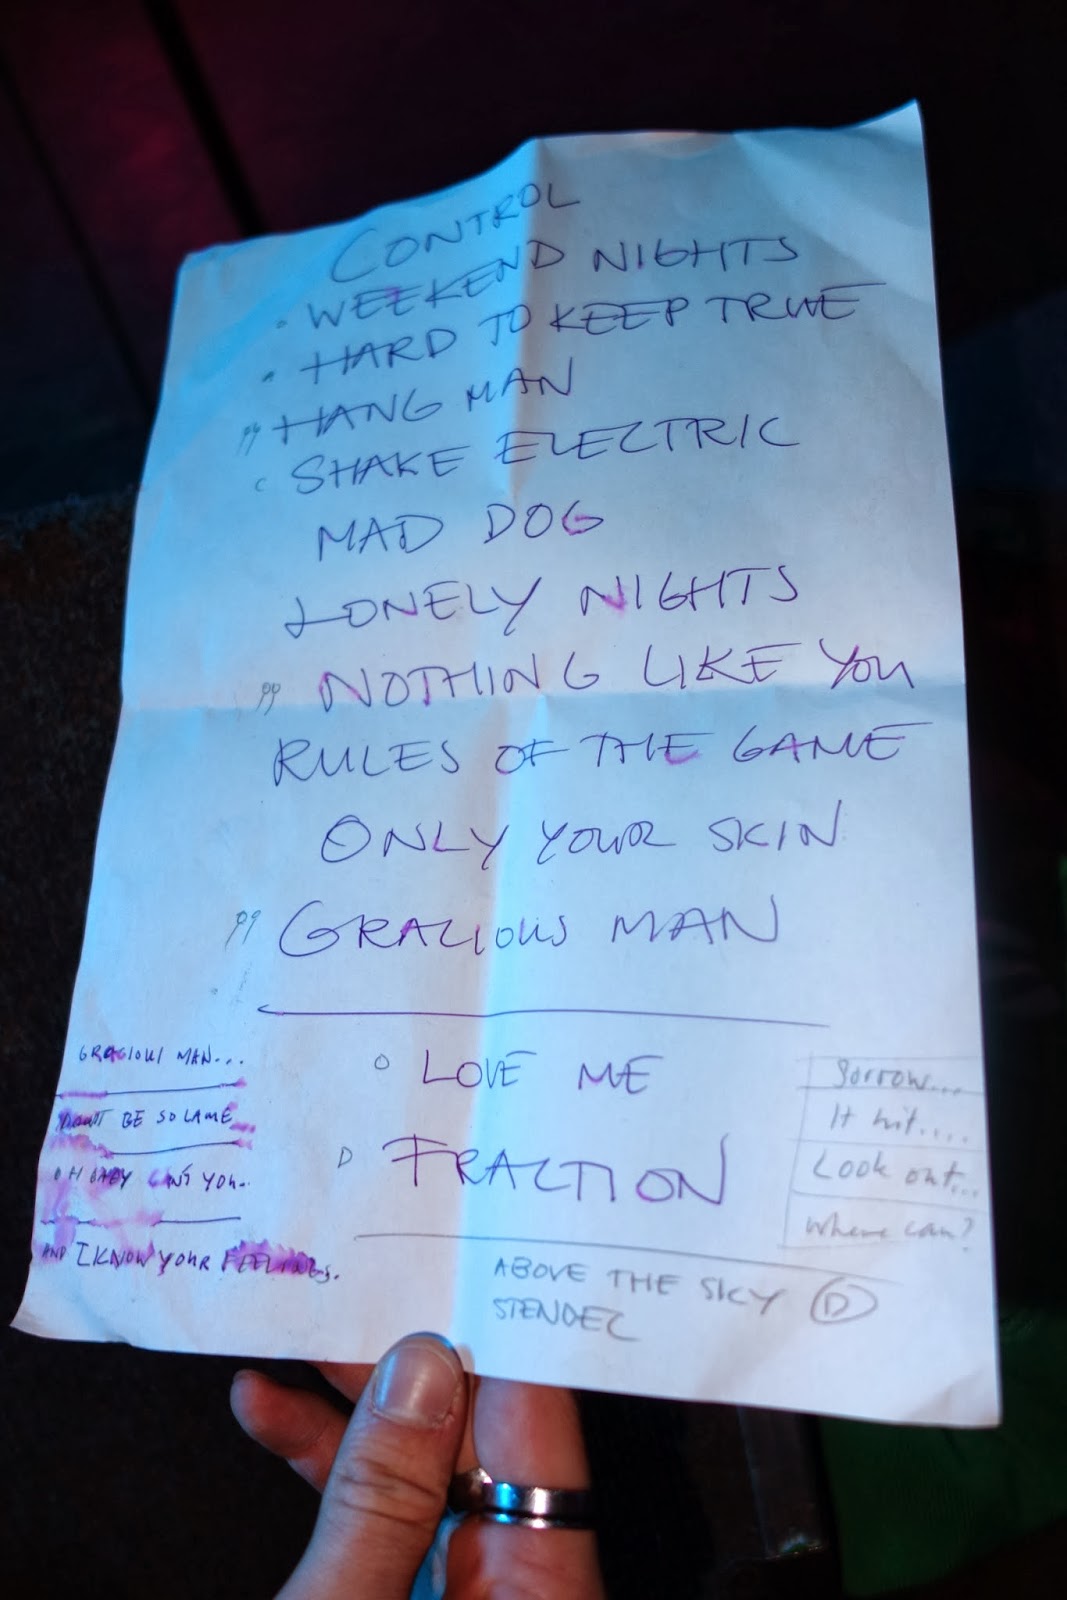 CONTROL
WEEKEND NIGHTS
HARD TO KEEP TRUE
" HANG MAN
SHAKE ELECTRIC
MAD DOG
LONELY NIGHTS
" NOTHING LIKE YOU
RULES OF THE GAME
ONLY YOUR SKIN
GRACIOUS MAN
O LOVE ME
D FRACTION
GRACIOUS MAN...
DON'T BE SO LAME
OH BABY CAN'T YOU..
AND I KNOW YOUR FEELINGS.
Sorrow...
It hit....
Look out...
Where can?
ABOVE THE SKY D